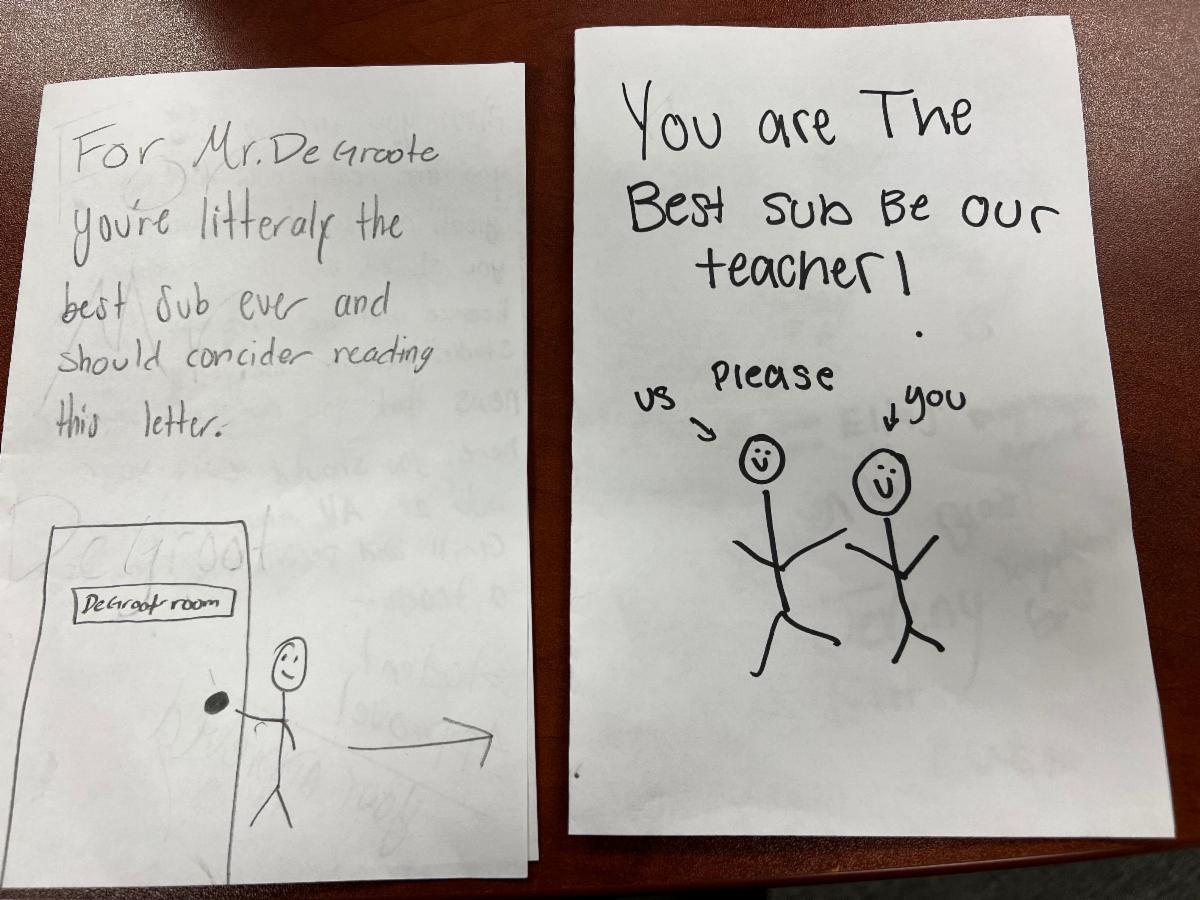 For Mr. DeGroote
you're litteraly the
best sub ever and
should concider reading
this letter.
DeGroot room
You are The
Best sub Be our
teacher!
please
us
you